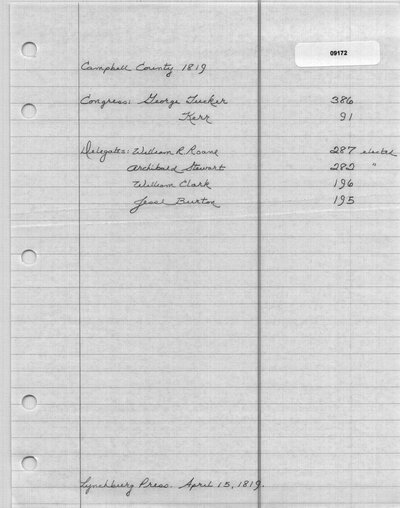 09172
Campbell County 1819
Congress: George Tucker 386
Kerr 91
Delegates: William R Roane 287 elected
Archibald Stewart 282 "
William Clark 196
Jesse Burton 195
Lynchburg Press. April 15, 1819.